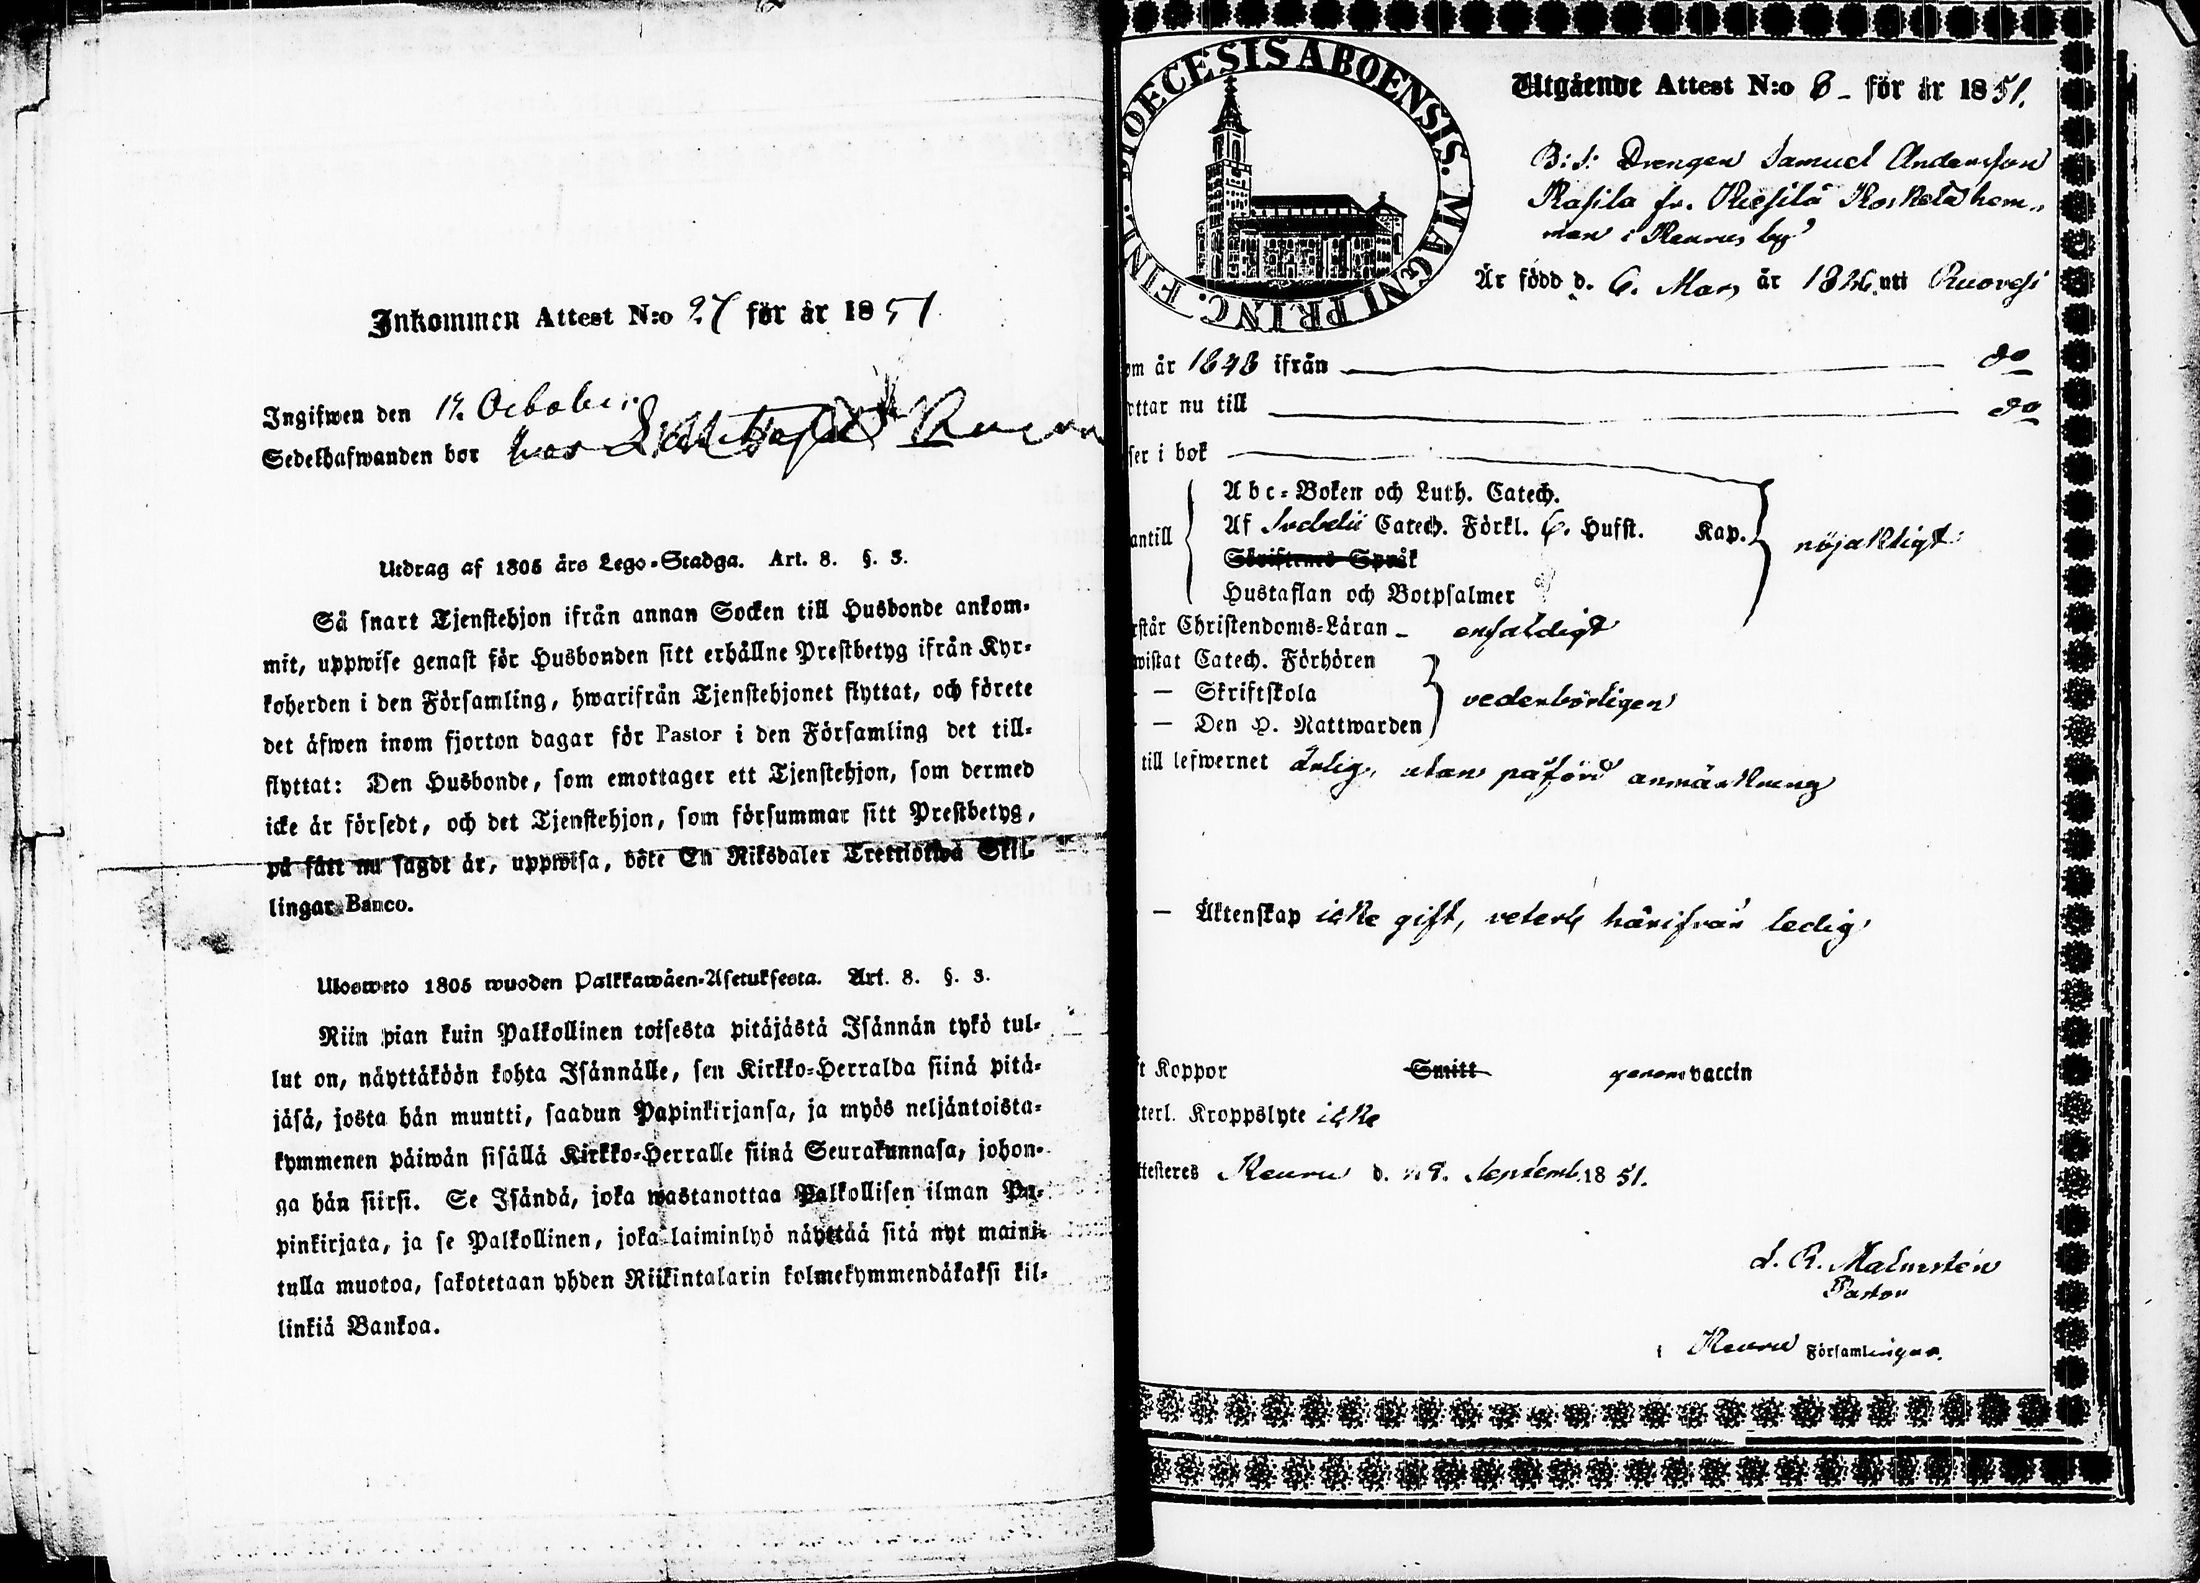 Inkommen Attest N:o 27 för år 1851
Ingifwen den 14. October
Sedelhafwanden bor hos
Utdrag af 1805 års Lego-Stadga. Art. 8. §. 3.
Så snart Tjenstehjon ifrån annan Socken till Husbonde ankom-
mit, uppwise genast för Husbonden sitt erhållne Prestbetyg ifrån Kyr-
koherden i den Församling, hwarifrån Tjenstehjonet flyttat, och förete
det äfwen inom fjorton dagar för Pastor i den Församling det till-
flyttat: Den Husbonde, som emottager ett Tjenstehjon, som dermed
icke är försedt, och det Tjenstehjon, som försummar sitt Prestbetyg,
på sätt nu sagdt är, uppwisa, böte En Riksdaler Trettiotwå Skil-
lingar Banco.
Ulosweto 1805 wuoden Palkkawäen-Asetuksesta. Art. 8. §. 3.
Niin pian kuin Palkollinen toisesta pitäjästä Isännän tykö tul-
lut on, näyttäköön kohta Isännälle, sen Kirkko-Herralda siinä pitä-
jäsä, josta hän muutti, saadun Papinkirjansa, ja myös neljäntoista-
kymmenen päiwän sisällä Kirkko-Herralle siinä Seurakunnasa, johon-
ga hän siirsi. Se Isändä, joka wastanottaa Palkollisen ilman Pa-
pinkirjata, ja se Palkollinen, joka laiminlyö näyttää sitä nyt maini-
tulla muotoa, sakotetaan yhden Riikintalarin kolmekymmendäkaksi kil-
linkiä Bankoa.
DIOECESIS ABOENSIS. MAGNI PRINC. FINL.
Utgående Attest N:o 8 för år 1851.
B: s: Drengen Samuel Andersson
Kasila fr. Riesilä Koskela hem-
man i Keuru by
Är född d. 6. Mars år 1826 uti Ruovesi
om år 1848 ifrån do
ottar nu till do
ser i bok
Abc-Boken och Luth. Catech.
antill Af Svebelii Catech. Förkl. 6. Hufst. Kap. nöjaktigt
Skriftenes Språk
Hustaflan och Botpsalmer
rstår Christendoms-Läran enfaldigt
wistat Catech. Förhören
— Skriftskola vederbörligen
— Den H. Nattwarden
till lefwernet ärlig, utan påförd anmärkning
— Äktenskap icke gift, veterl. härifrån ledig
ft Koppor Smitt genom vaccin
tterl. Kroppslyte icke
ttesteres Keuru d. 29. Septemb. 1851.
L. R. Malmstén
Pastor
i Keuru Församlingar.